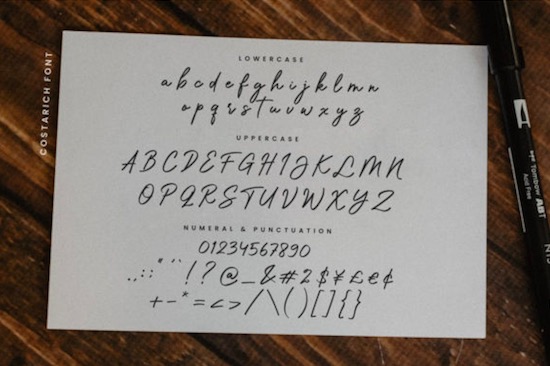 COSTARICH FONT
LOWERCASE
a b c d e f g h i j k l m n
o p q r s t u v w x y z
UPPERCASE
A B C D E F G H I J K L M N
O P Q R S T U V W X Y Z
NUMERAL & PUNCTUATION
01234567890
.,:;"'`!?@_&#2$¥£e¢
+-*=<>/\()[]{}
Tombow ABT
Acid Free
N15